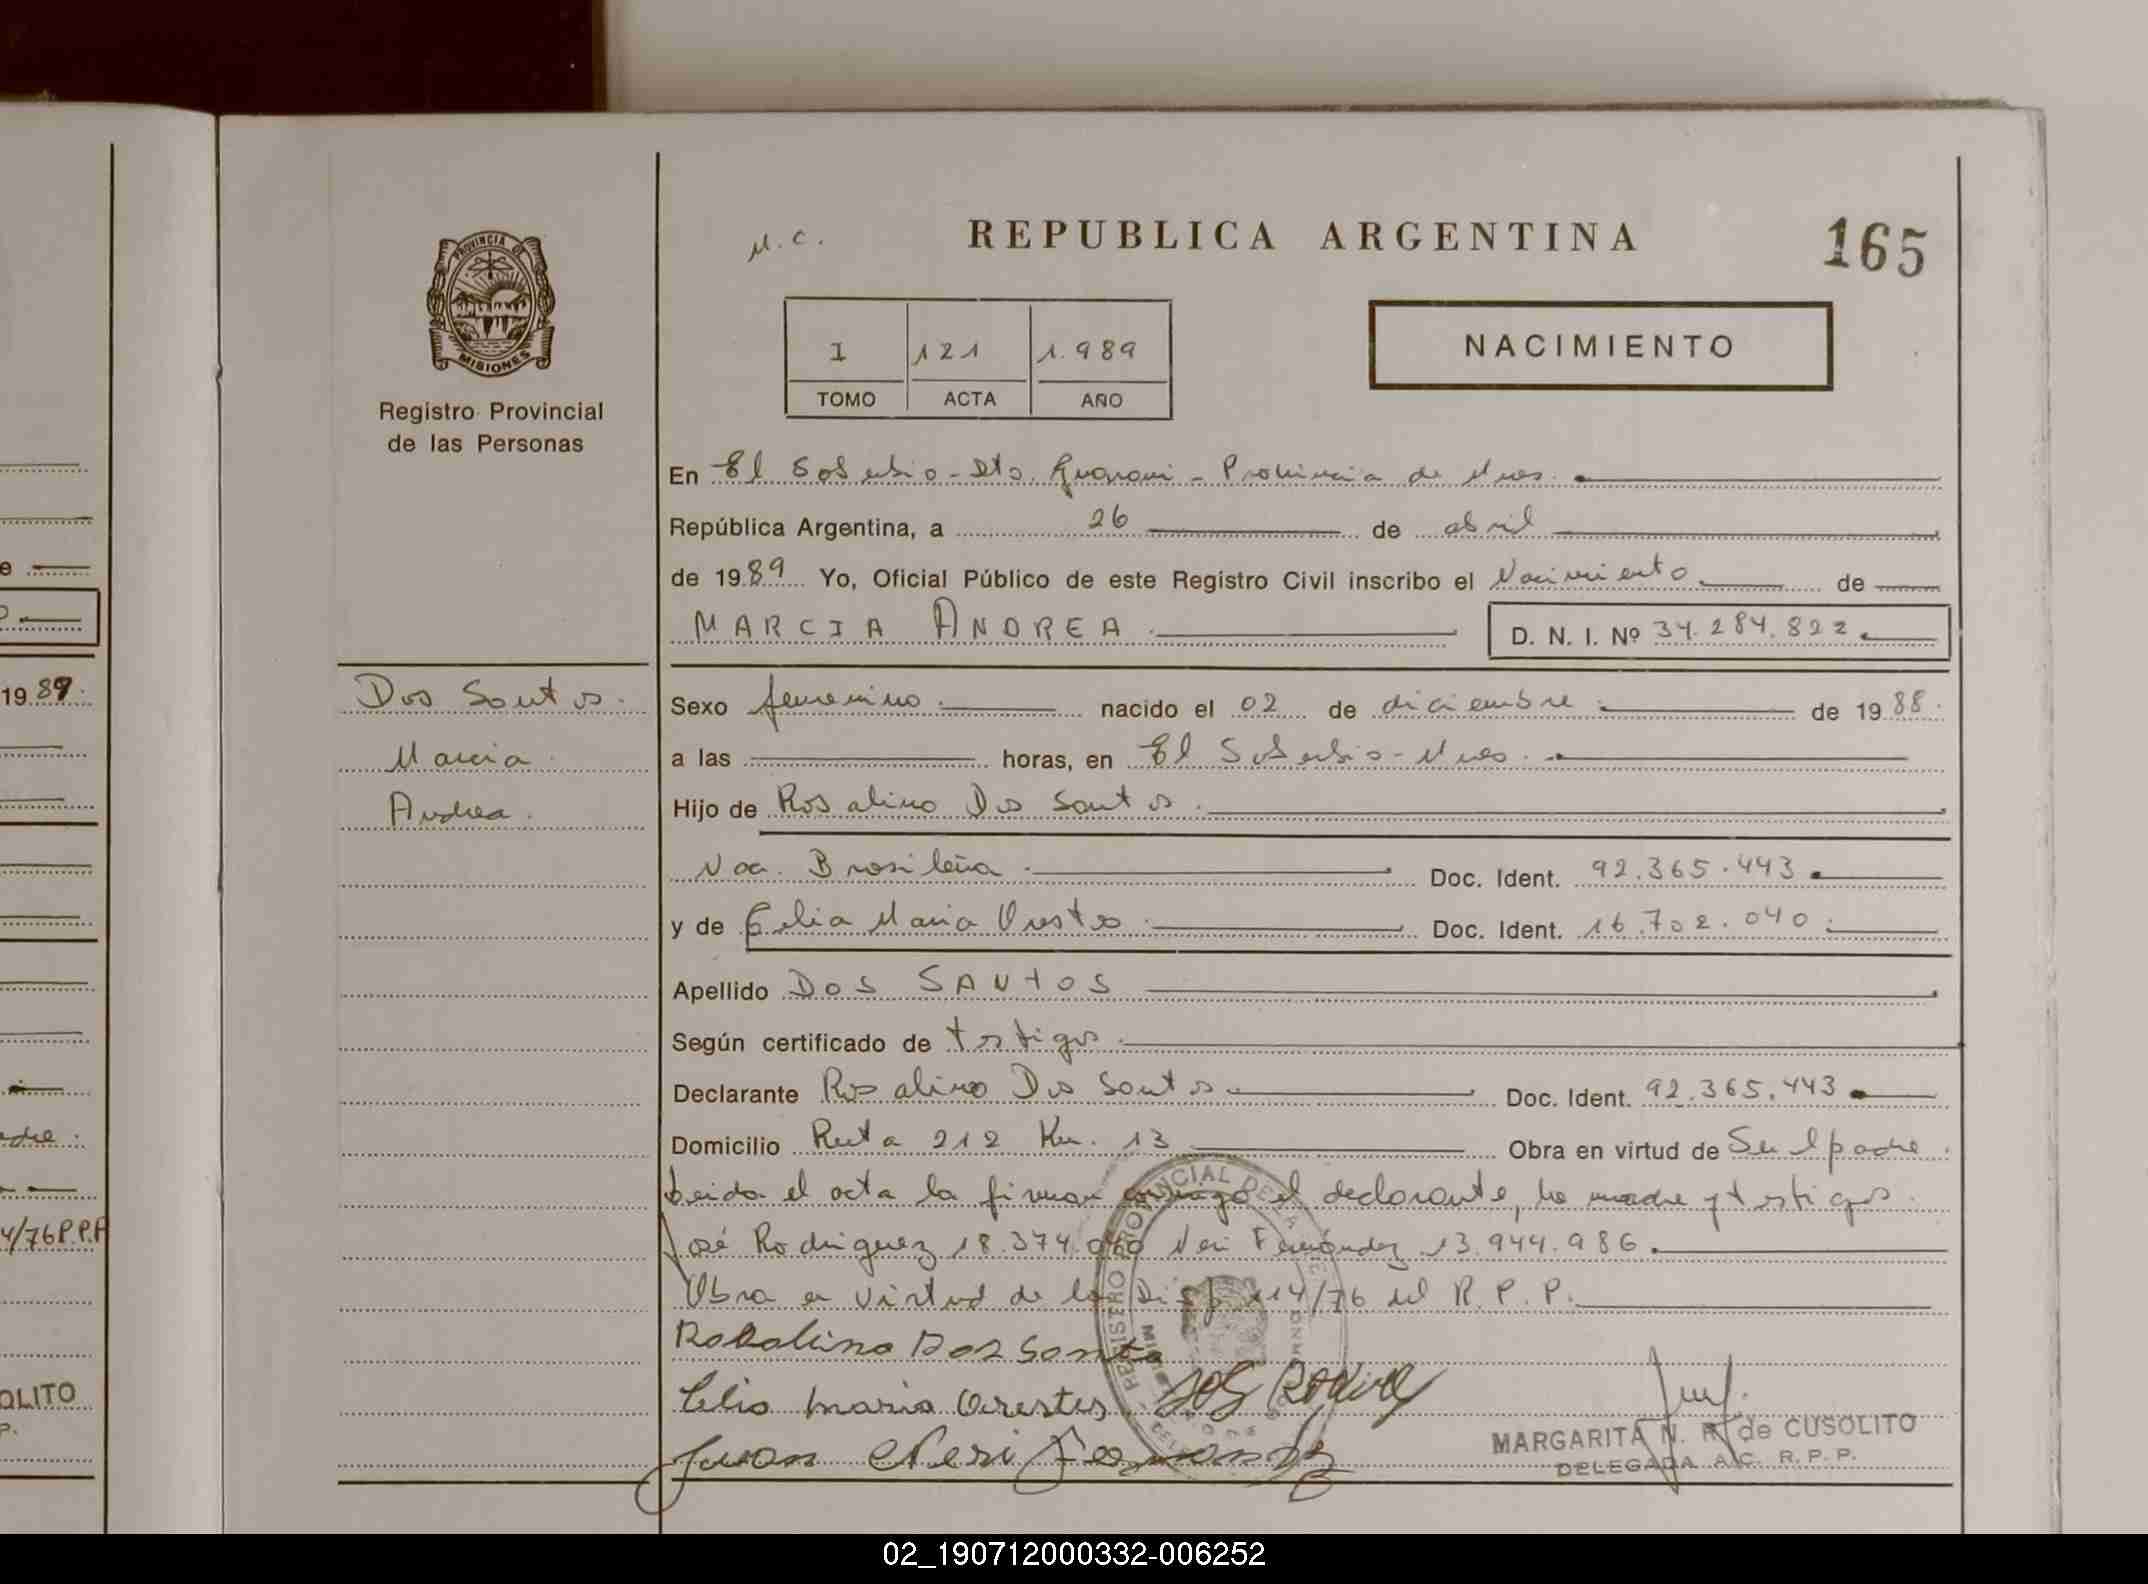 REPUBLICA ARGENTINA
165
PROVINCIA DE MISIONES
Registro Provincial
de las Personas
I 121 1.989
TOMO ACTA AÑO
NACIMIENTO
En El Soberbio - Dto. Guarani - Provincia de Mnes.
República Argentina, a 26 de abril
de 1989 Yo, Oficial Público de este Registro Civil inscribo el Nacimiento de
MARCIA ANDREA D. N. I. Nº 34.284.822
Dos Santos
Marcia
Andrea
Sexo femenino nacido el 02 de diciembre de 1988.
a las horas, en El Soberbio - Mnes.
Hijo de Rosalino Dos Santos
Nac. Brasileña Doc. Ident. 92.365.443
y de Celia Maria Orestes Doc. Ident. 16.702.040
Apellido DOS SANTOS
Según certificado de testigos
Declarante Rosalino Dos Santos Doc. Ident. 92.365.443
Domicilio Ruta 212 Km. 13 Obra en virtud de Ser el padre.
Leida el acta la firman conmigo el declarante, la madre y testigos.
José Rodriguez 18.374.060 Neri Fernández 13.944.986
Obra en virtud de la Disp. 114/76 del R. P. P.
Rosalino Dos Santo
Celia maria Orestes
Juan Neri Fernandez
MARGARITA N. R. de CUSOLITO
DELEGADA A/C. R. P. P.
1989.
4/76 P.P.P
OLITO
P.
02_190712000332-006252